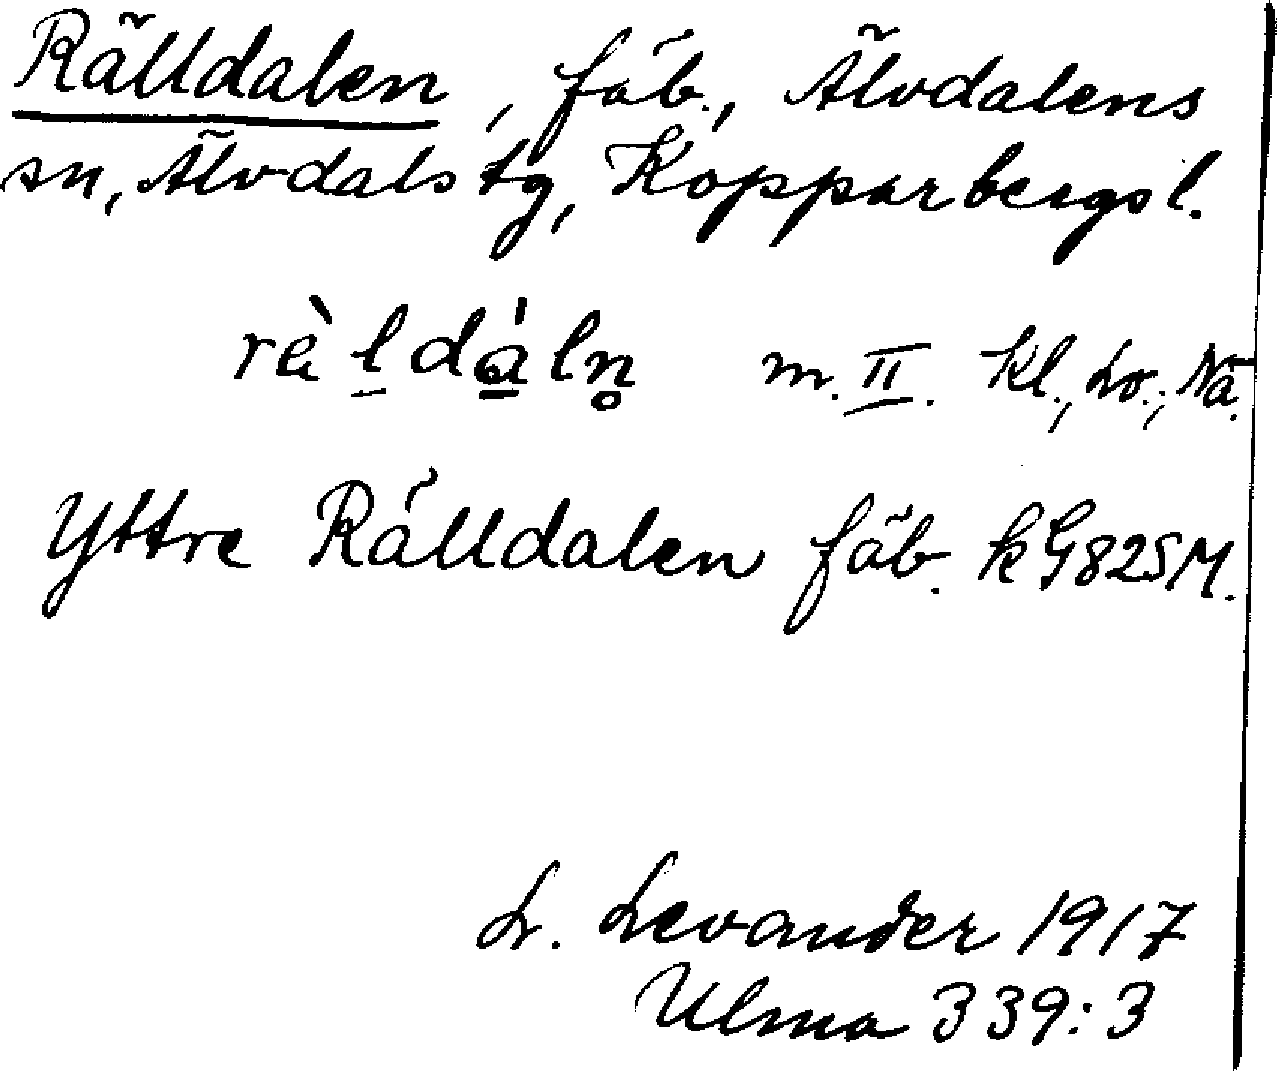 Rälldalen, fäb., Älvdalens
sn, Älvdals tg, Kopparbergs l.
rὲl̠dàln̥ m. II. Kl., Lo., Nä.
Yttre Rälldalen fäb. kG82SM.
L. Levander 1917
Ulma 339:3